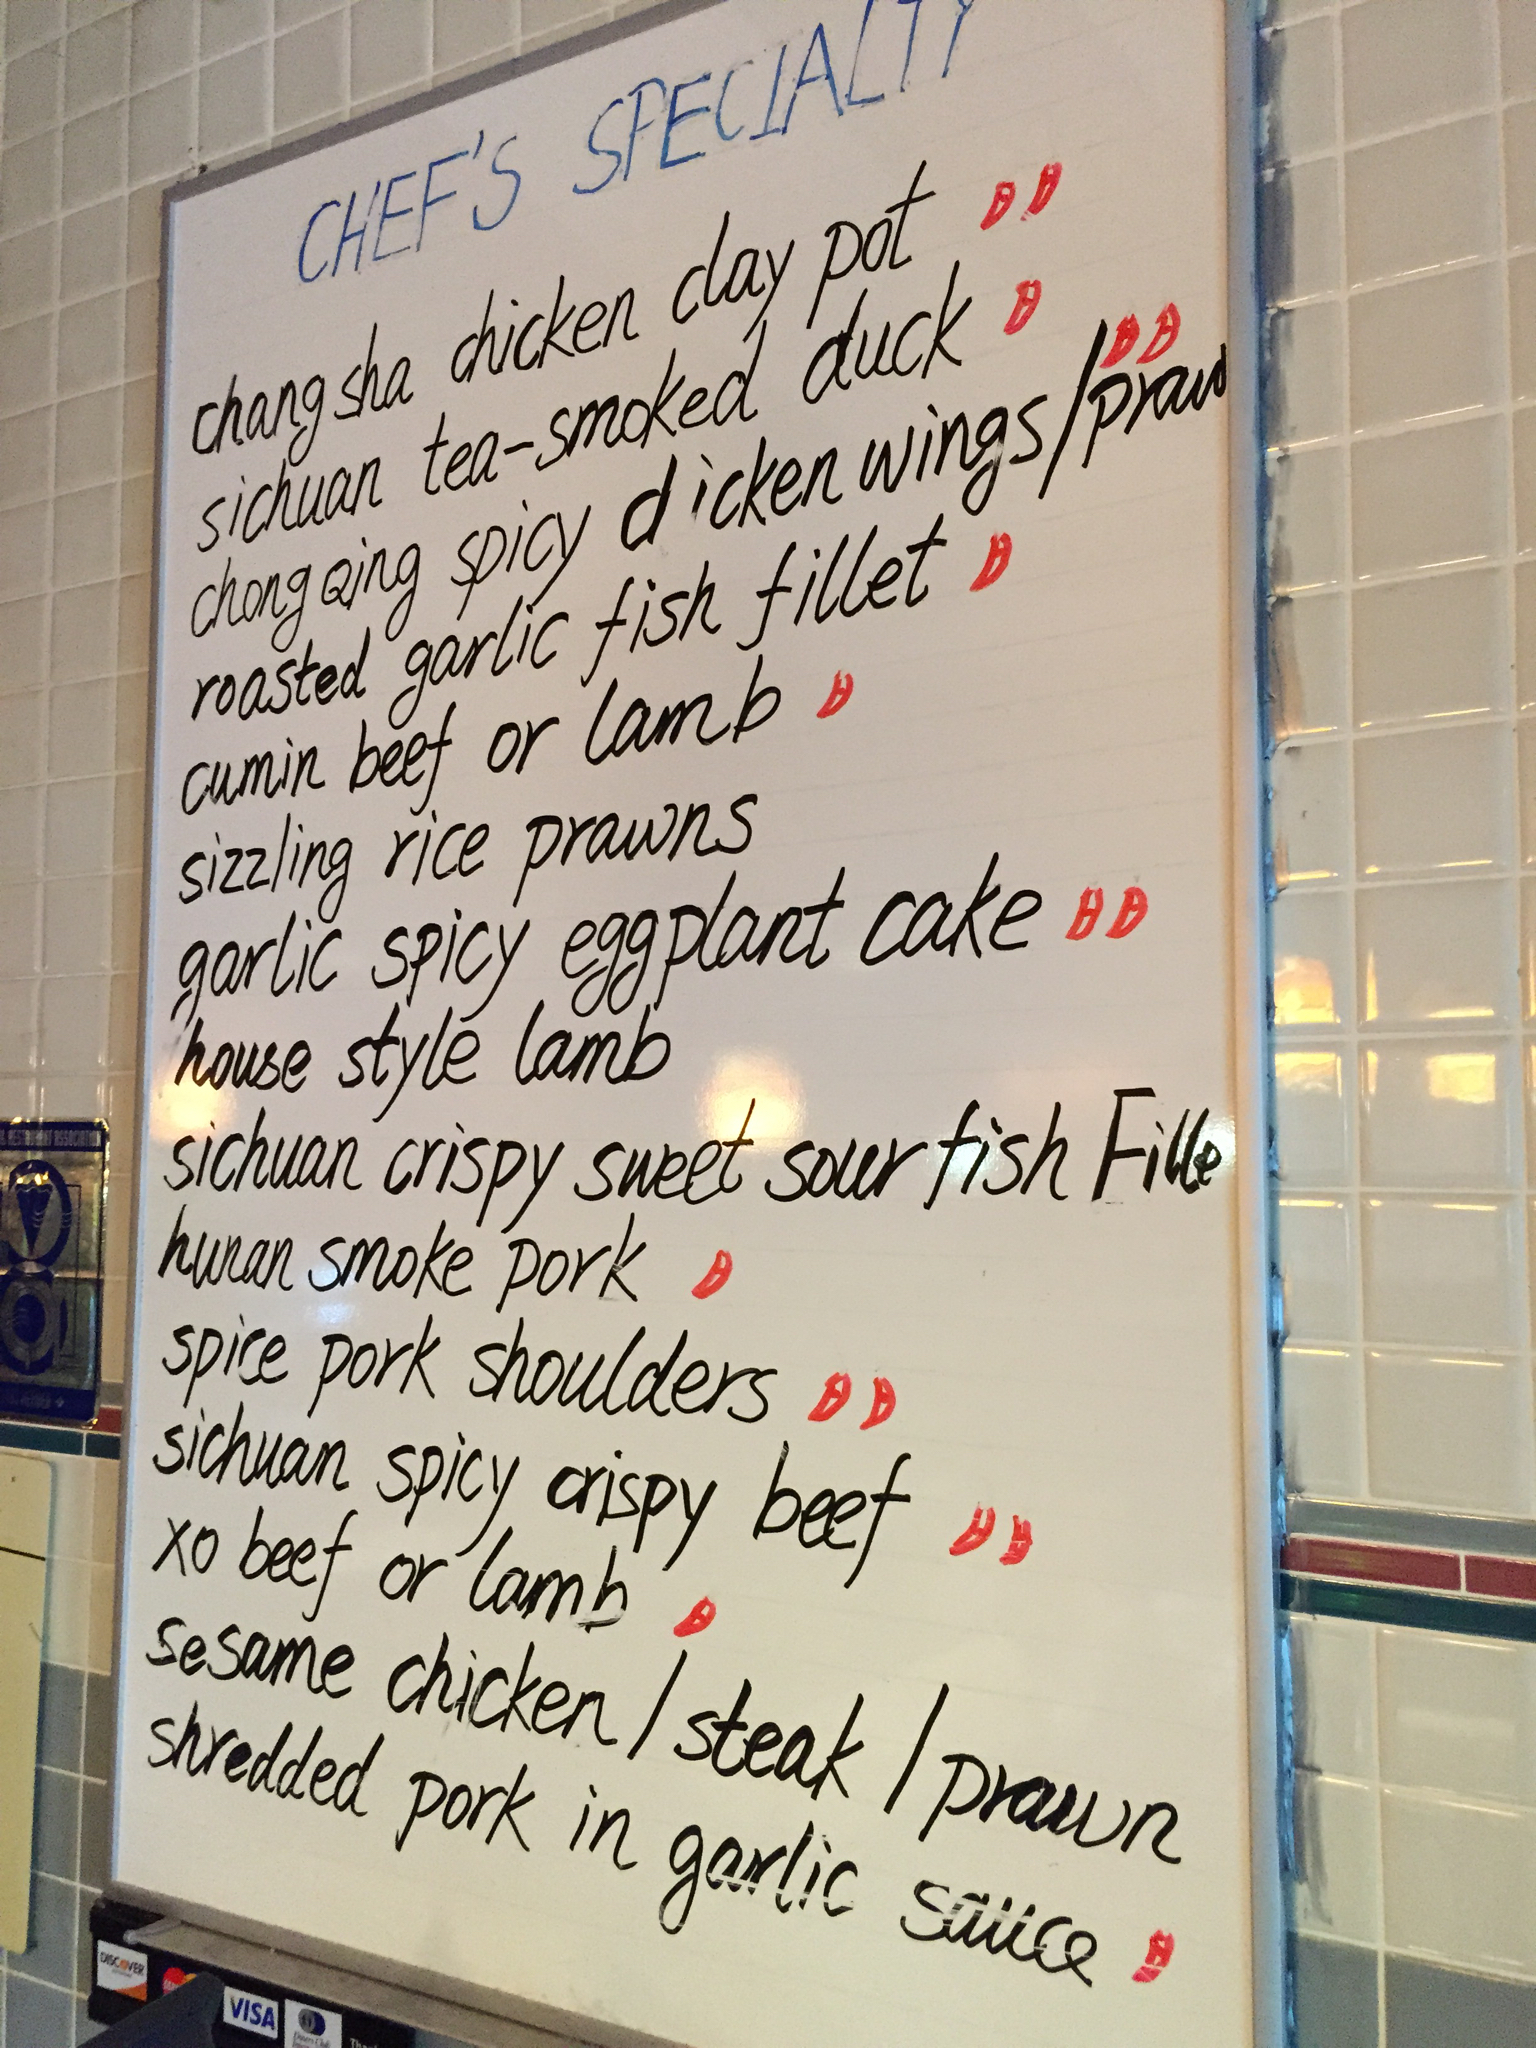 CHEF'S SPECIALTY
changsha chicken clay pot
sichuan tea-smoked duck
chongqing spicy chicken wings/prawn
roasted garlic fish fillet
cumin beef or lamb
sizzling rice prawns
garlic spicy eggplant cake
house style lamb
sichuan crispy sweet sour fish Fille
hunan smoke pork
spice pork shoulders
sichuan spicy crispy beef
xo beef or lamb
sesame chicken/steak/prawn
shredded pork in garlic sauce
RESTAURANT ASSOCIATION
DISCOVER
VISA